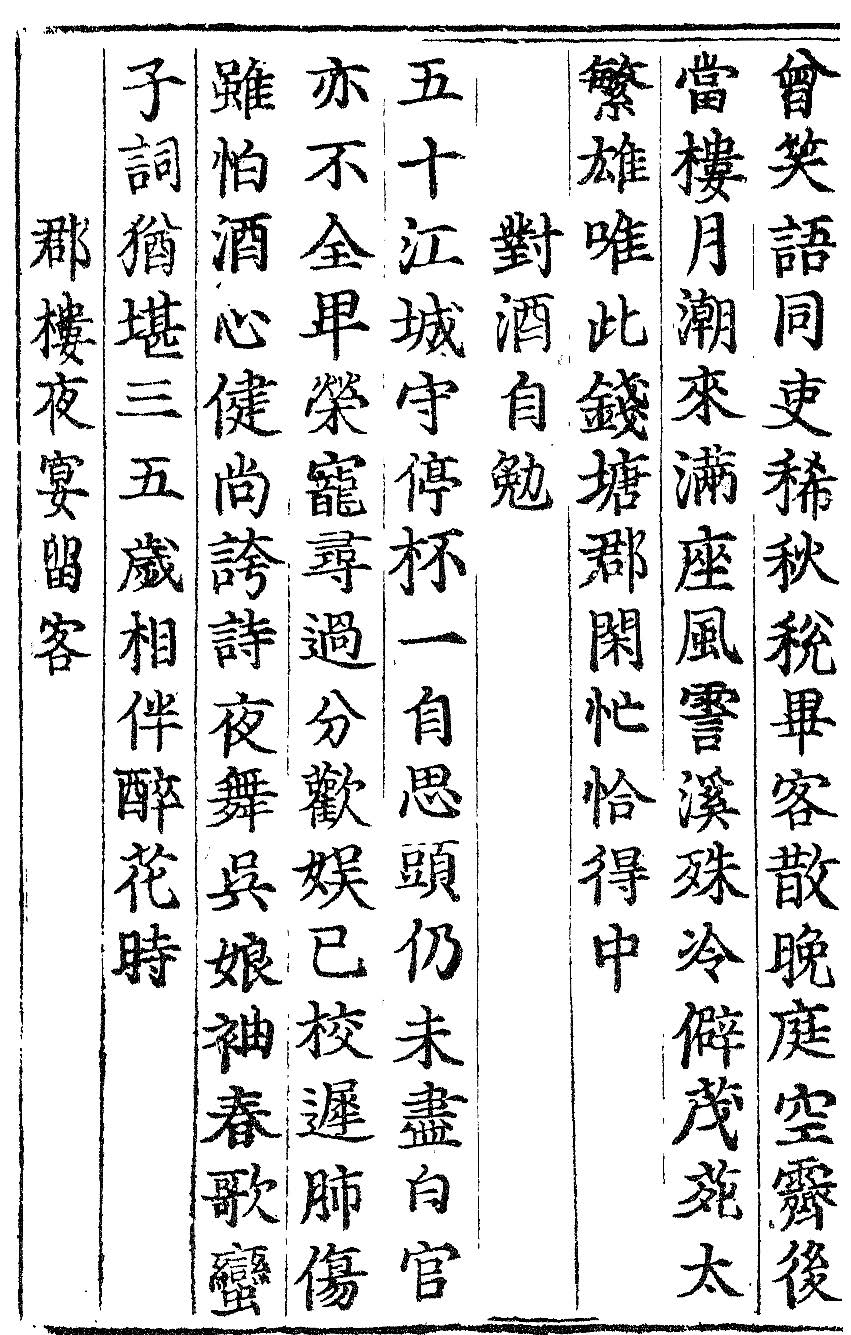 曾笑語同吏稀秋稅畢客散晚庭空霽後
當樓月潮來滿座風霅溪殊冷僻茂苑太
繁雄唯此錢塘郡閑忙恰得中
對酒自勉
五十江城守停杯一自思頭仍未盡白官
亦不全卑榮寵尋過分歡娛已校遲肺傷
雖怕酒心健尚誇詩夜舞吳娘袖春歌蠻
子詞猶堪三五歲相伴醉花時
郡樓夜宴留客